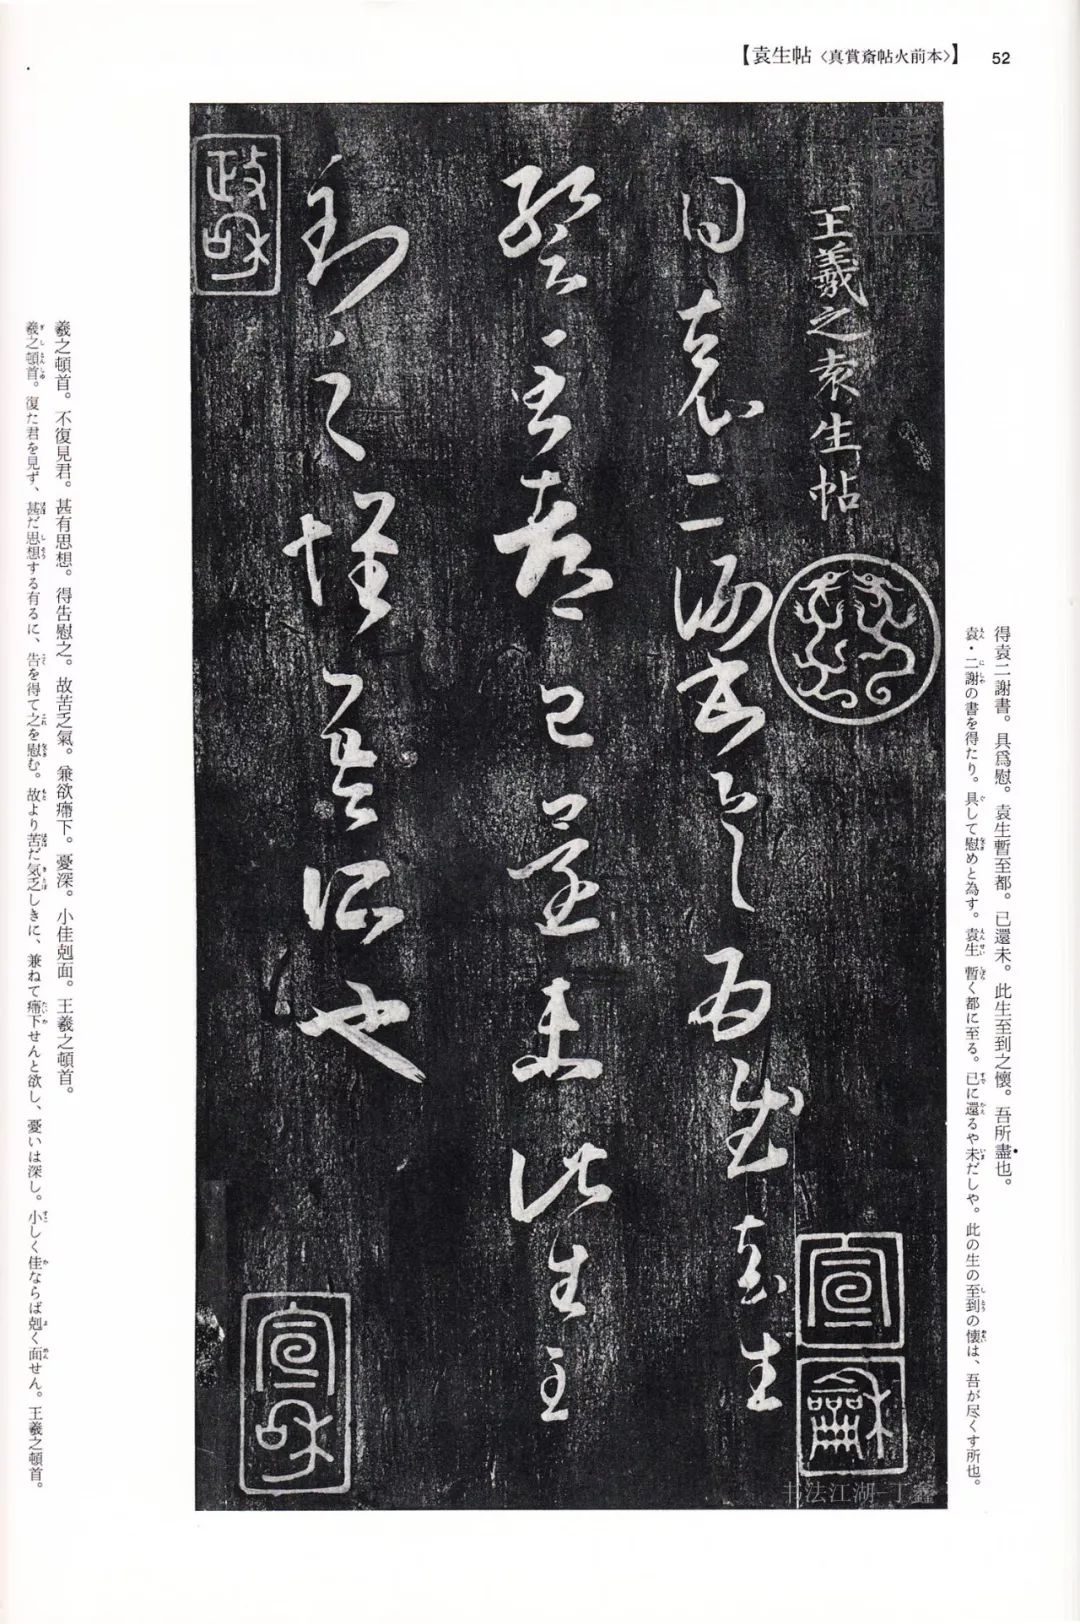 【袁生帖〈真賞斎帖火前本〉】 52
得袁二謝書。具爲慰。袁生暫至都。已還未。此生至到之懷。吾所盡也。
袁・二謝の書を得たり。具して慰めと為す。袁生暫く都に至る。已に還るや未だしや。此の生の至到の懐は、吾が尽くす所也。
王羲之袁生帖
得袁二謝書具爲慰袁生
暫至都已還未此生至
到之懷吾所盡也
政和
宣和
宣龢
書法江湖-丁鑫
羲之頓首。不復見君。甚有思想。得告慰之。故苦乏氣。兼欲㿃下。憂深。小佳剋面。王羲之頓首。
羲之頓首。復た君を見ず、甚だ思想する有るに、告を得て之を慰む。故より苦だ気乏しきに、兼ねて㿃下せんと欲し、憂いは深し。小しく佳ならば剋く面せん。王羲之頓首。